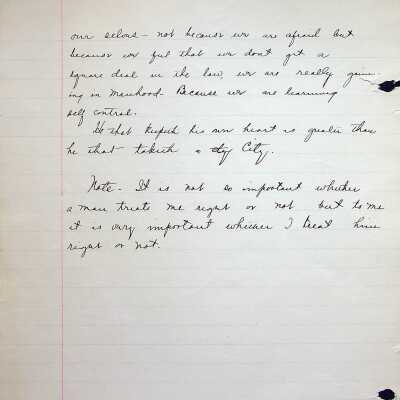 our selves - not because we are afraid but
because we feel that we don't get a
square deal in the law, we are really gain-
ing in manhood. Because we are learning
self control.
He that keepeth his own heart is greater than
he that taketh a city City.
Note - It is not so important whether
a man treats me right or not but to me
it is very important whether I treat him
right or not.